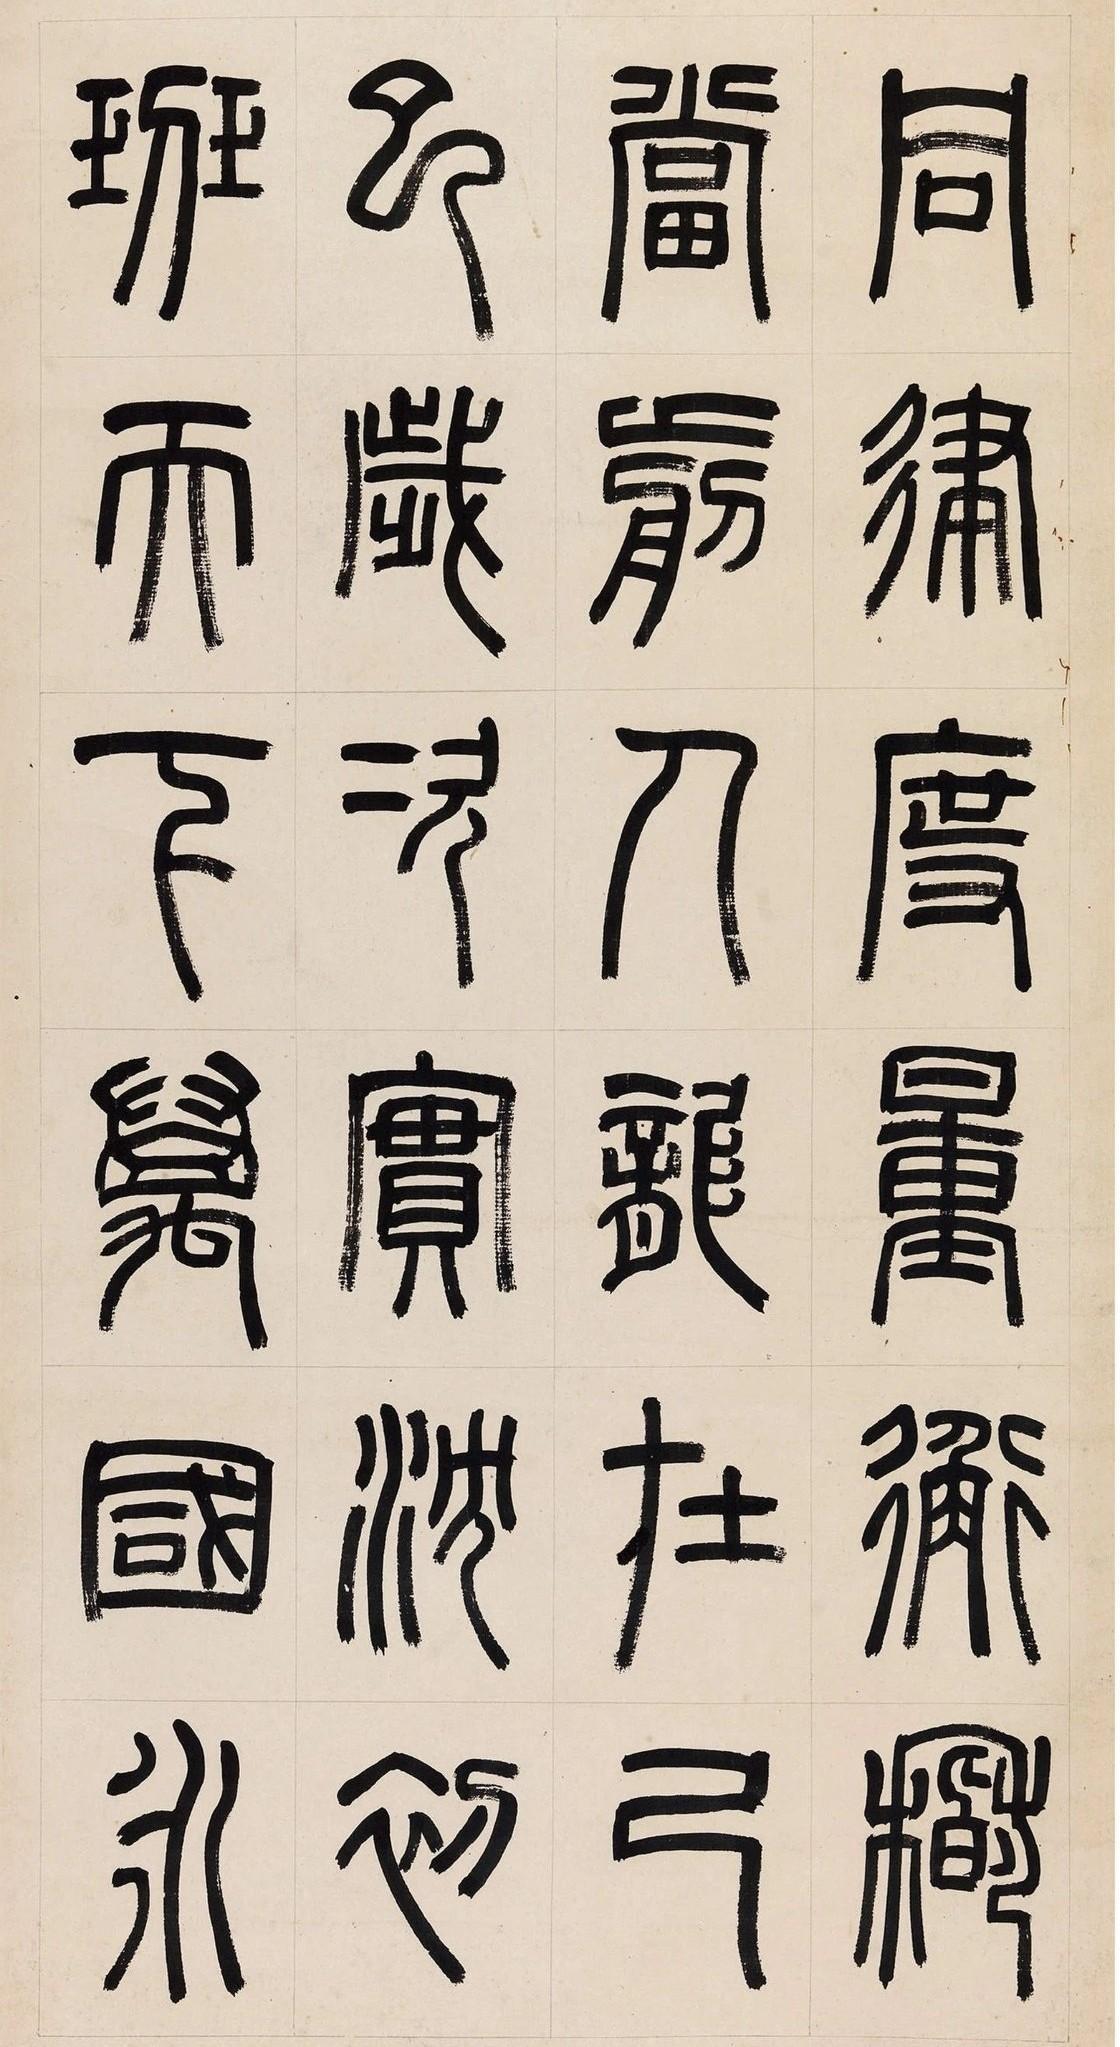 同律度量衡稽
當前人龍在己
巳歲次實沈初
班天下萬國永